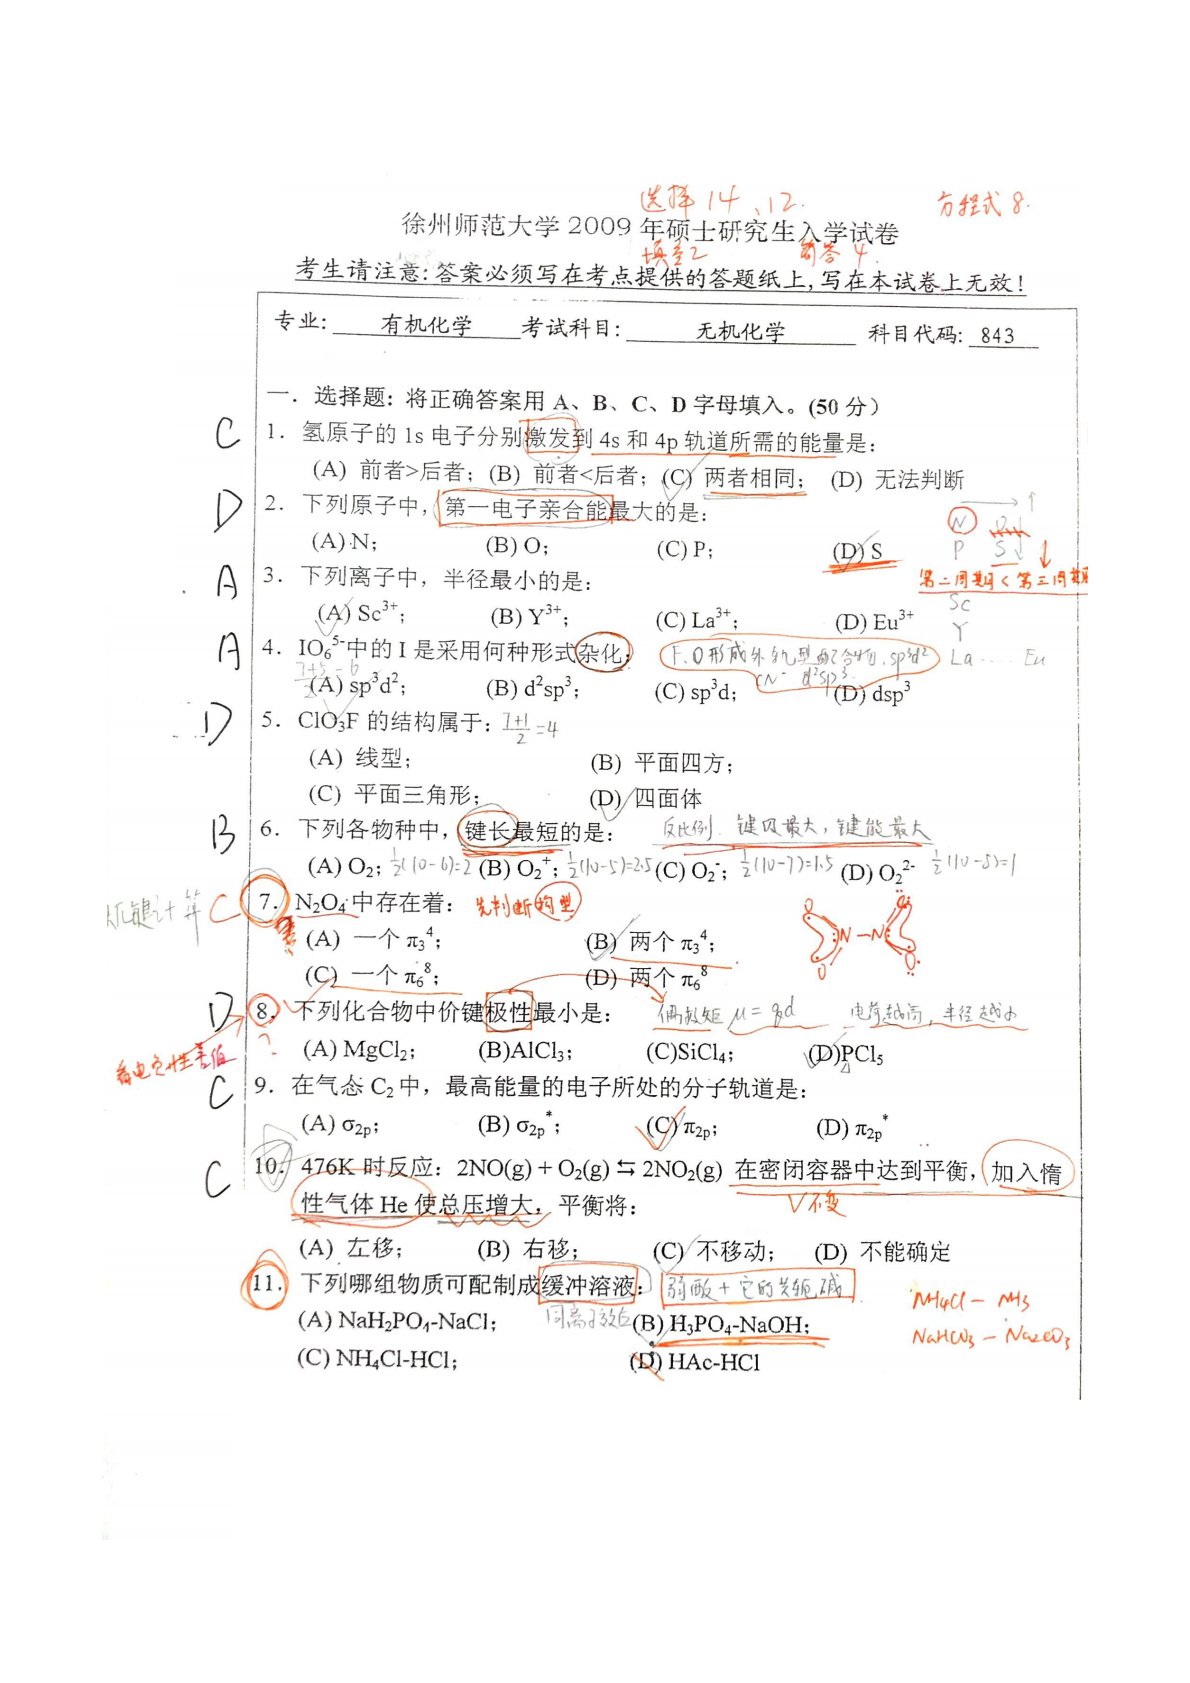 选择14、12. 方程式8.
徐州师范大学2009年硕士研究生入学试卷
填空2 简答4.
考生请注意:答案必须写在考点提供的答题纸上,写在本试卷上无效!
专业: 有机化学 考试科目: 无机化学 科目代码: 843
一. 选择题: 将正确答案用 A、B、C、D 字母填入。(50 分)
C 1. 氢原子的 1s 电子分别激发到 4s 和 4p 轨道所需的能量是:
(A) 前者>后者; (B) 前者<后者; (C) 两者相同; (D) 无法判断
D 2. 下列原子中, 第一电子亲合能最大的是:
(A) N; (B) O; (C) P; (D) S
N O
P S
第二周期<第三周期
A 3. 下列离子中, 半径最小的是:
(A) Sc³⁺; (B) Y³⁺; (C) La³⁺; (D) Eu³⁺
Sc
Y
La ····· Eu
A 4. IO₆⁵⁻中的 I 是采用何种形式杂化:
F、O形成外轨型配合物, sp³d²
CN⁻ d²sp³
(A) sp³d²; (B) d²sp³; (C) sp³d; (D) dsp³
D 5. ClO₃F 的结构属于: (7+1)/2=4
(A) 线型; (B) 平面四方;
(C) 平面三角形; (D) 四面体
B 6. 下列各物种中, 键长最短的是: 反比例. 键级最大, 键能最大
(A) O₂; ½(10-6)=2 (B) O₂⁺; ½(10-5)=2.5 (C) O₂⁻; ½(10-7)=1.5 (D) O₂²⁻ ½(10-8)=1
大π键计算 C 7. N₂O₄ 中存在着: 先判断构型
(A) 一个 π₃⁴; (B) 两个 π₃⁴;
(C) 一个 π₆⁸; (D) 两个 π₆⁸
O O
N-N
O O
D 8. 下列化合物中价键极性最小是: 偶极矩 μ=qd 电荷越高, 半径越小
看电负性差值 ?
(A) MgCl₂; (B)AlCl₃; (C)SiCl₄; (D)PCl₅
C 9. 在气态 C₂ 中, 最高能量的电子所处的分子轨道是:
(A) σ₂ₚ; (B) σ₂ₚ*; (C) π₂ₚ; (D) π₂ₚ*
C 10. 476K 时反应: 2NO(g) + O₂(g) ⇆ 2NO₂(g) 在密闭容器中达到平衡, 加入惰
性气体 He 使总压增大, 平衡将: V不变
(A) 左移; (B) 右移; (C) 不移动; (D) 不能确定
11. 下列哪组物质可配制成缓冲溶液: 弱酸+它的共轭碱
NH₄Cl-NH₃
(A) NaH₂PO₄-NaCl; 同离子效应 (B) H₃PO₄-NaOH;
NaHCO₃-Na₂CO₃
(C) NH₄Cl-HCl; (D) HAc-HCl